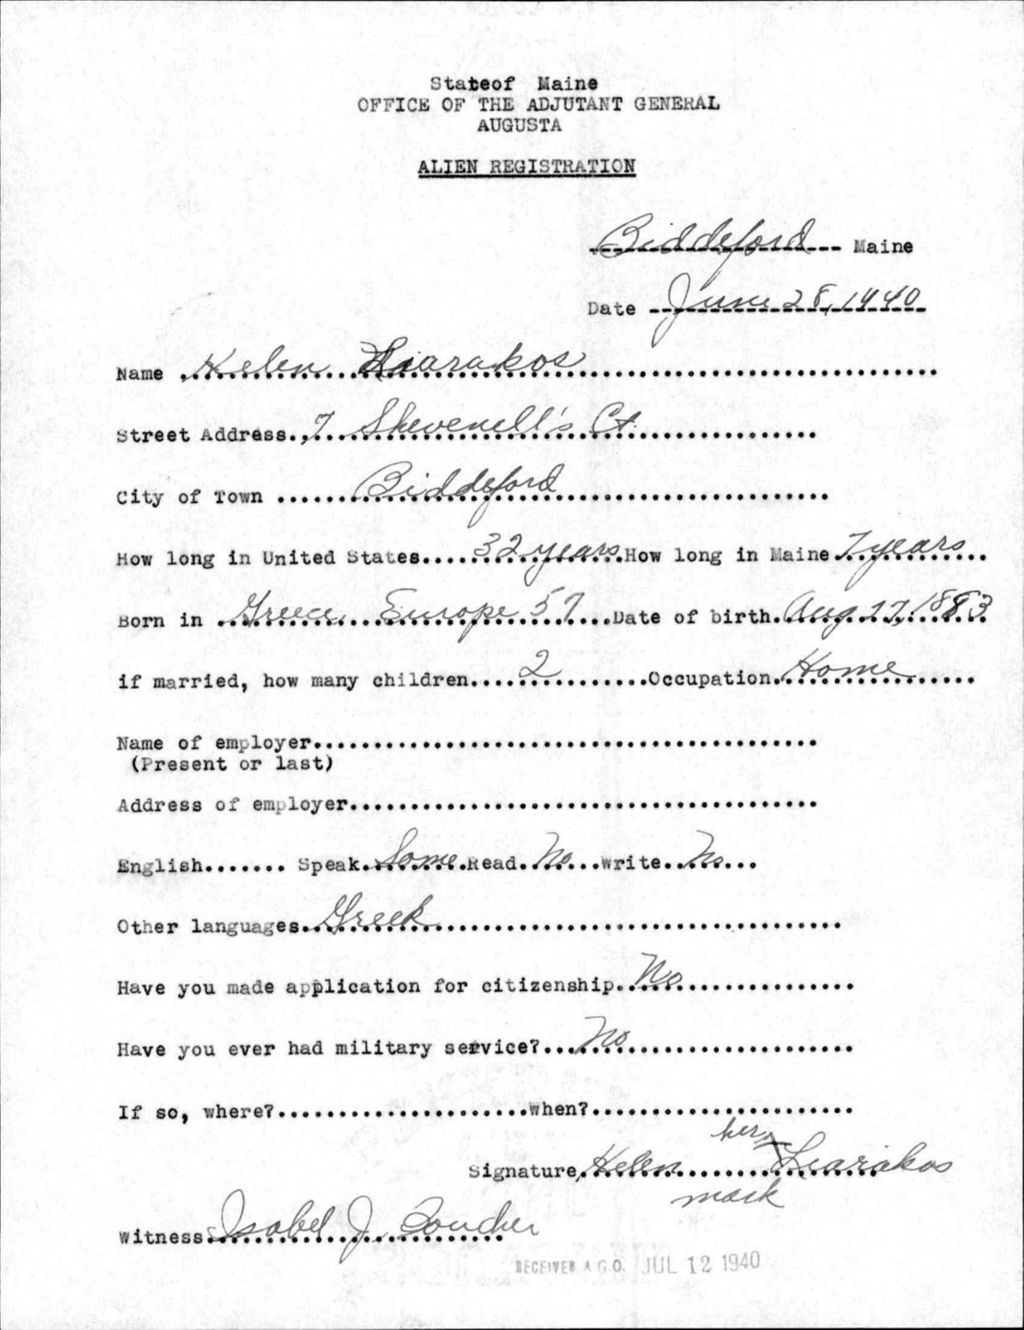 Stateof Maine
OFFICE OF THE ADJUTANT GENERAL
AUGUSTA
ALIEN REGISTRATION
Biddeford Maine
Date June 28, 1940
Name Helen Liarakos
Street Address 7 Shevenell's Ct.
City of Town Biddeford
How long in United States 32 years How long in Maine 7 years
Born in Greece Europe 57 Date of birth Aug. 17, 1883
if married, how many children 2 Occupation Home
Name of employer
(Present or last)
Address of employer
English Speak Some Read No Write No
Other languages Greek
Have you made application for citizenship No
Have you ever had military service? No
If so, where? when?
her
Signature Helen X Liarakos
mark
Witness Isabel J. Boucher
RECEIVED A.G.O. JUL 12 1940